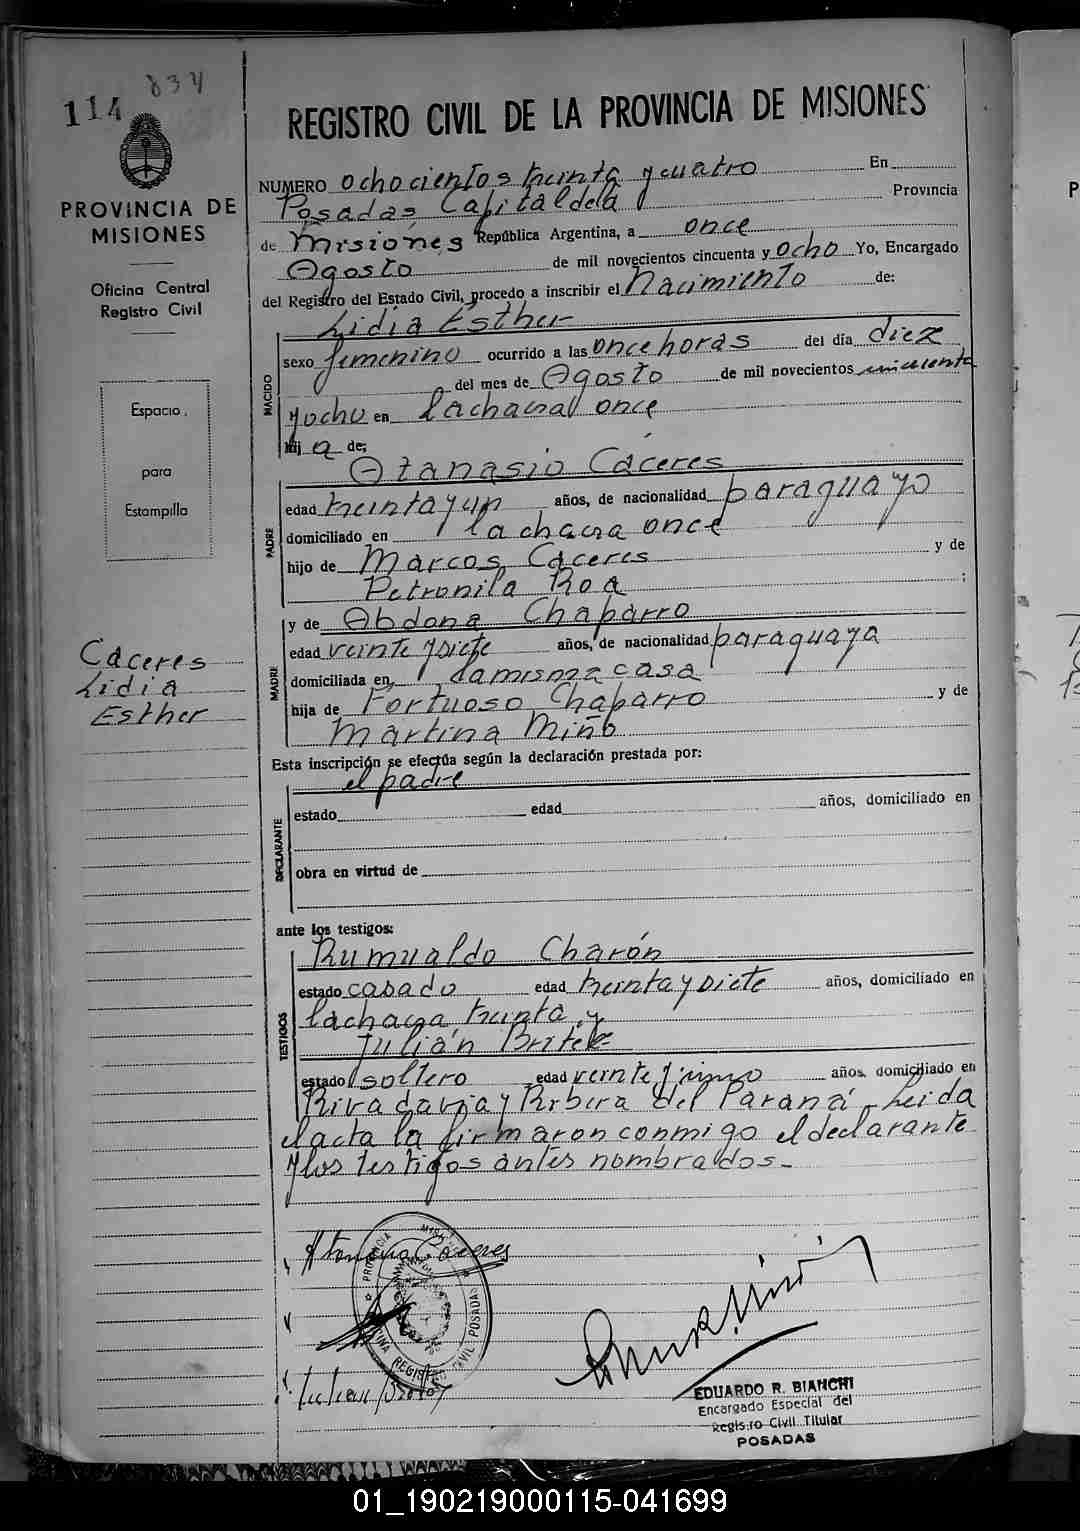 834
114
PROVINCIA DE
MISIONES
Oficina Central
Registro Civil
Espacio
para
Estampilla
Cáceres
Lidia
Esther
REGISTRO CIVIL DE LA PROVINCIA DE MISIONES
NUMERO ochocientos treinta y cuatro En
Posadas Capital de la Provincia
de Misiones República Argentina, a once
Agosto de mil novecientos cincuenta y ocho Yo, Encargado
del Registro del Estado Civil, procedo a inscribir el Nacimiento de:
Lidia Esther
NACIDO
sexo femenino ocurrido a las once horas del día diez
del mes de Agosto de mil novecientos cincuenta
y ocho en la chacra once
hij a de:
Atanasio Cáceres
PADRE
edad treinta y un años, de nacionalidad paraguayo
domiciliado en la chacra once
hijo de Marcos Cáceres y de
Petronila Roa ;
y de Abdona Chaparro
MADRE
edad veinte y siete años, de nacionalidad paraguaya
domiciliada en la misma casa
hija de Fortuoso Chaparro y de
Martina Miño
Esta inscripción se efectúa según la declaración prestada por:
el padre
DECLARANTE
estado edad años, domiciliado en
obra en virtud de
ante los testigos:
Rumualdo Charón
TESTIGOS
estado casado edad treinta y siete años, domiciliado en
la chacra treinta y
Julián Britez
estado soltero edad veinte y uno años. domiciliado en
Rivadavia y Ribera del Paraná Leida
el acta la firmaron conmigo el declarante
y los testigos antes nombrados.-
Cáceres
PROVINCIA MISIONES
OFICINA REGISTRO CIVIL POSADAS
EDUARDO R. BIANCHI
Encargado Especial del
Registro Civil Titular
POSADAS
01_190219000115-041699